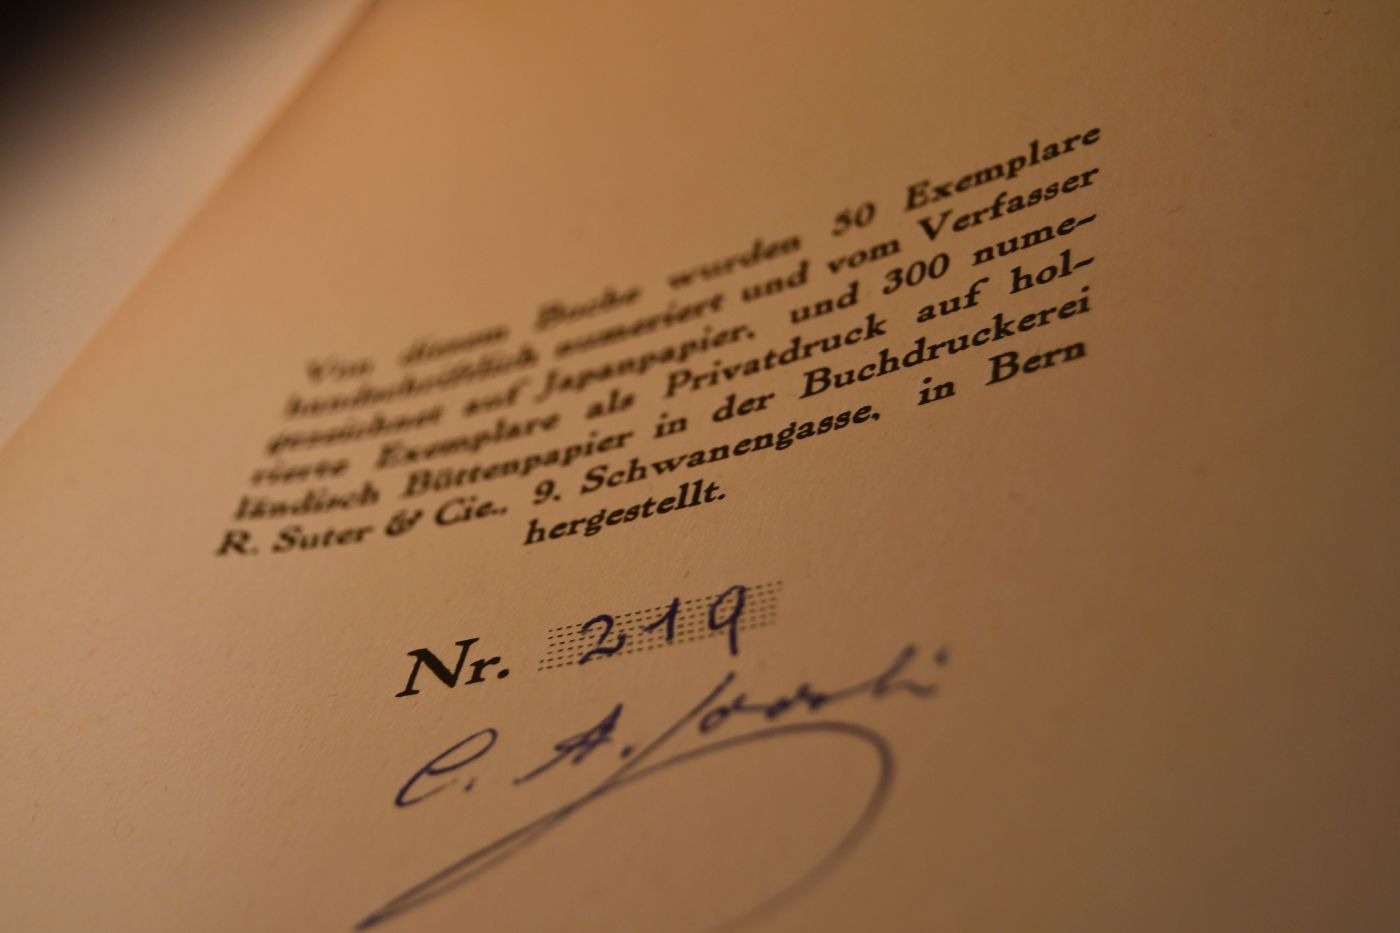 Von diesem Buche wurden 50 Exemplare
handschriftlich numeriert und vom Verfasser
gezeichnet auf Japanpapier, und 300 nume-
rierte Exemplare als Privatdruck auf hol-
ländisch Büttenpapier in der Buchdruckerei
R. Suter & Cie., 9. Schwanengasse, in Bern
hergestellt.
Nr. 219
C. A. Loosli